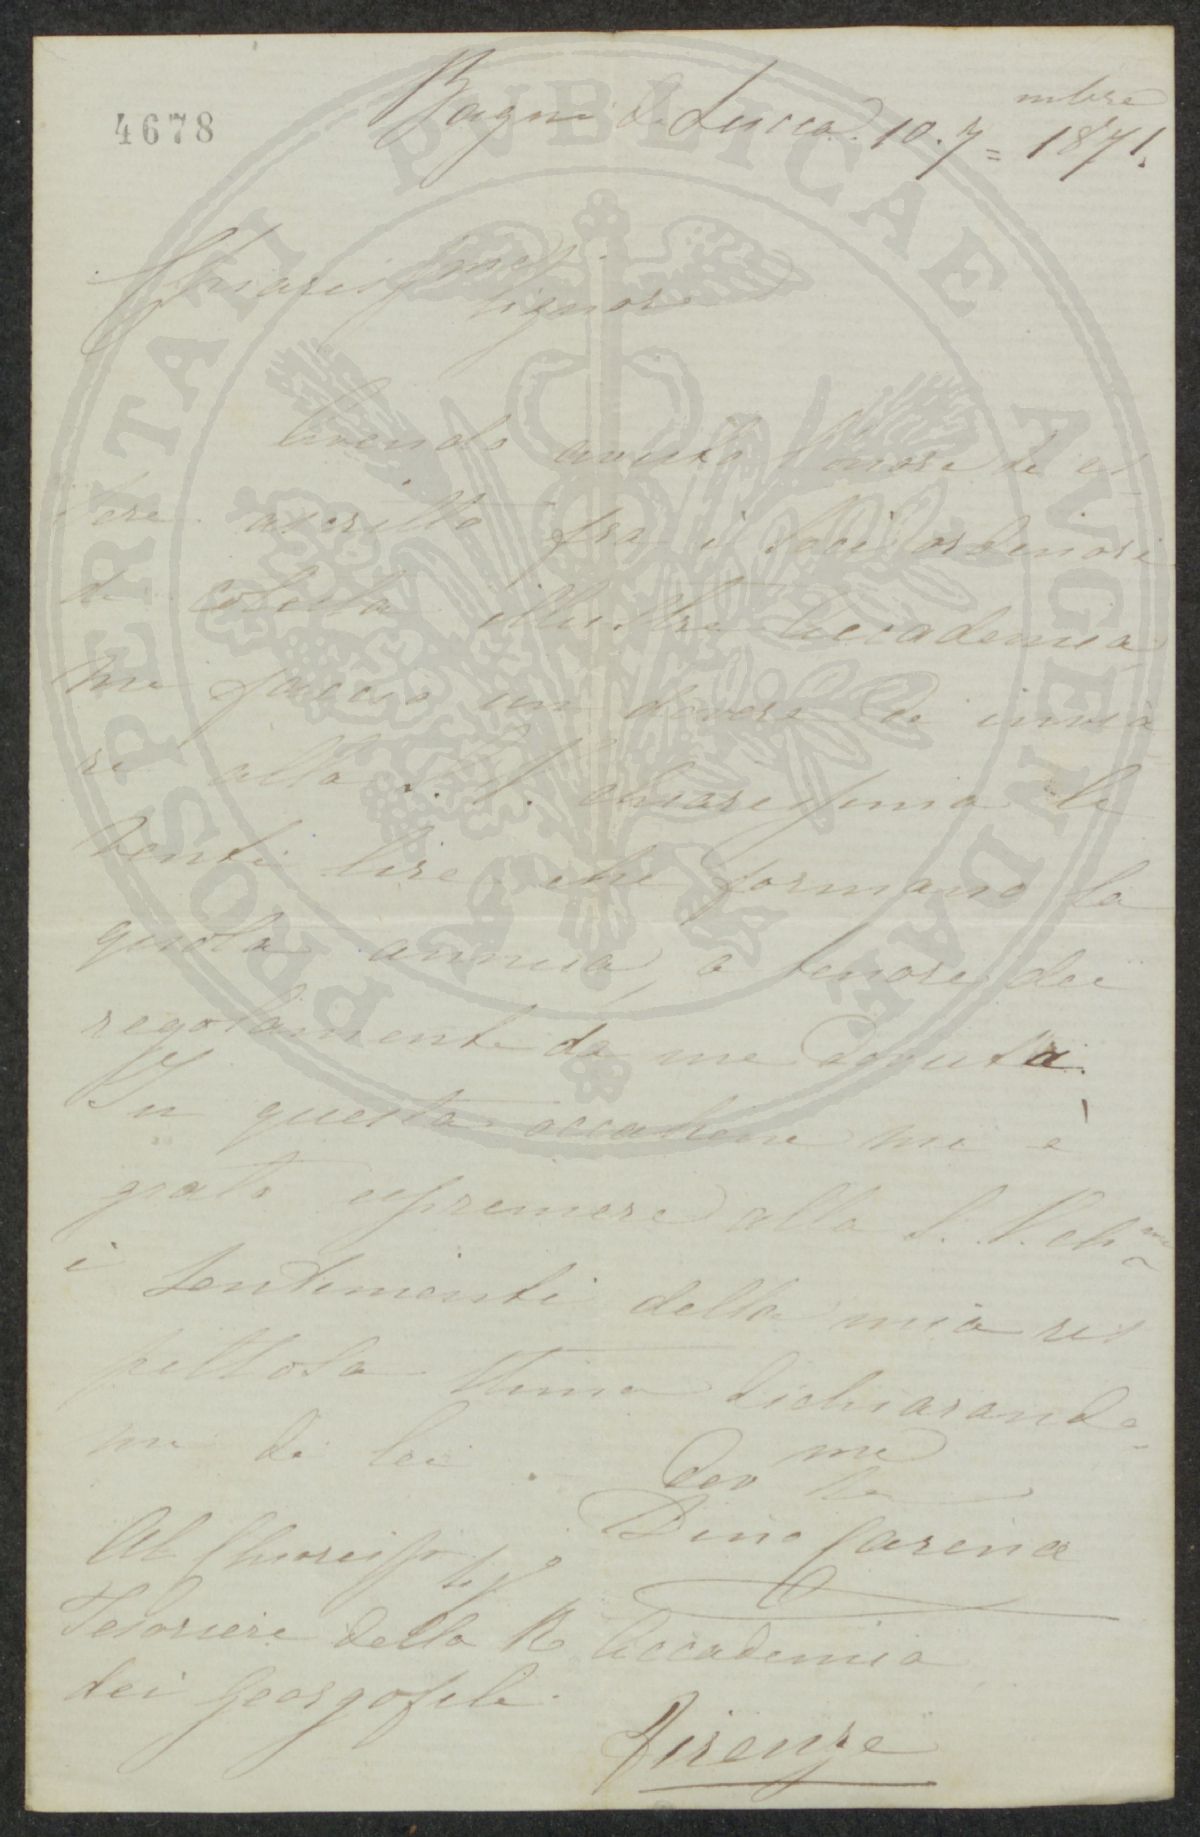 4678
Bagni di Lucca. 10. 7mbre = 1871.
Chiarissmo
Signore
Avendo avuto l'onore di es-
sere ascritto fra i Soci ordinari
di cotesta illustre Accademia,
mi faccio un dovere di invia-
re alla S. V. chiarissima le
venti lire che formano la
quota annua, a tenore dei
regolamenti da me dovuta.
In questa occasione mi è
grato esprimere alla S. V. chma
i sentimenti della mia ris-
pettosa stima dichiarando-
mi di lei.
Devmo
Dino Carina
Al Chiariss. Sig.
Tesoriere della R. Accademia
dei Georgofili.
Firenze
PROSPERITATI PVBLICAE AVGENDAE